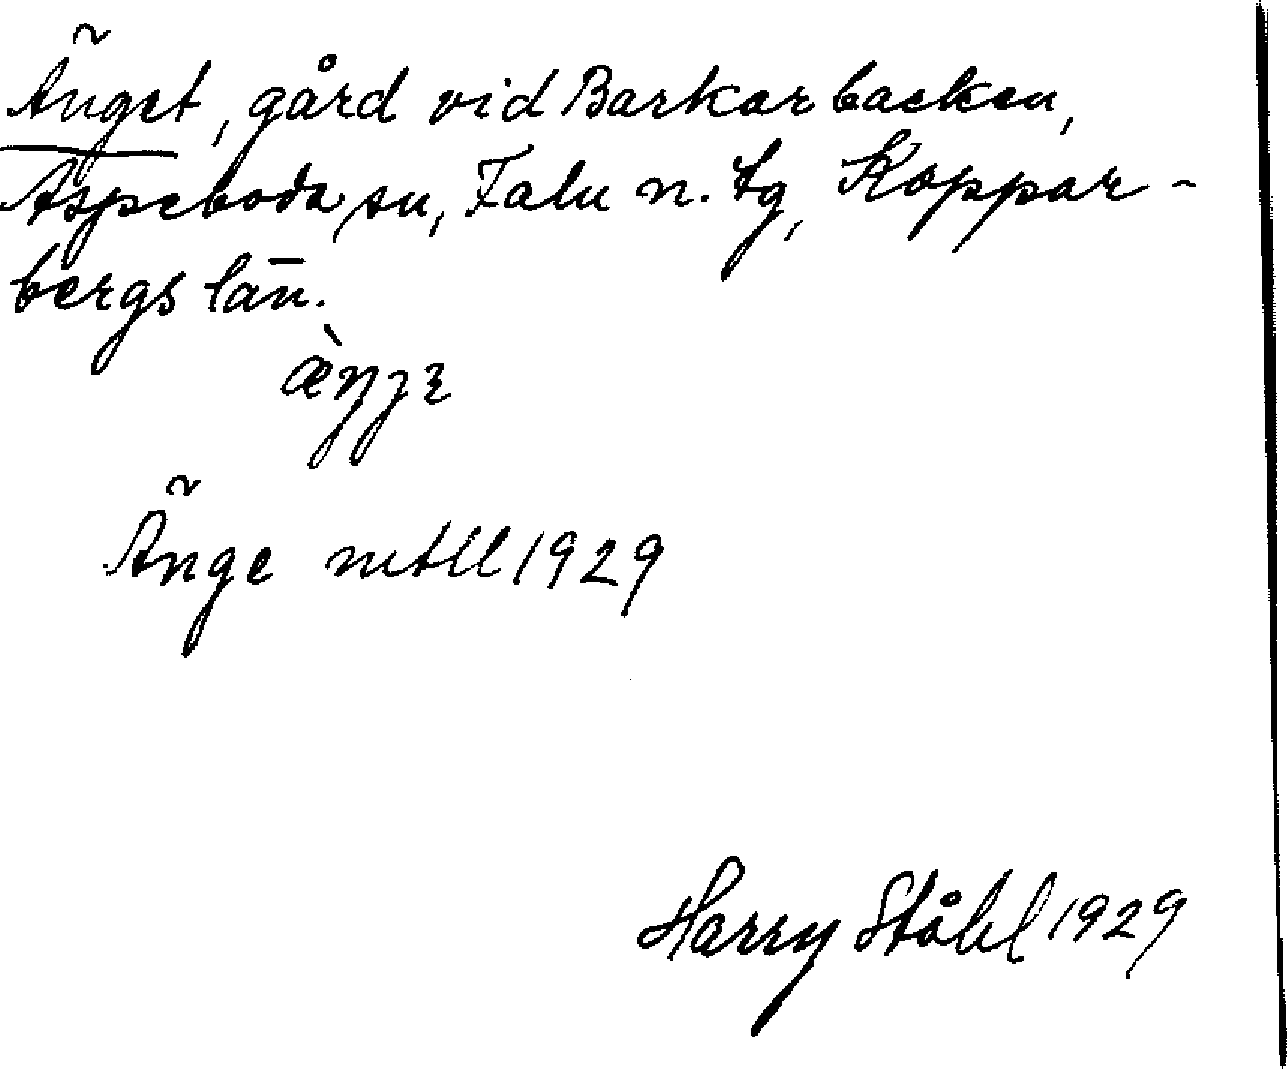 Änget, gård vid Barkarbacken,
Aspeboda sn, Falu n. tg, Koppar-
bergs län.
æ̀ŋɟɛ
Änge mtll 1929
Harry Ståhl 1929